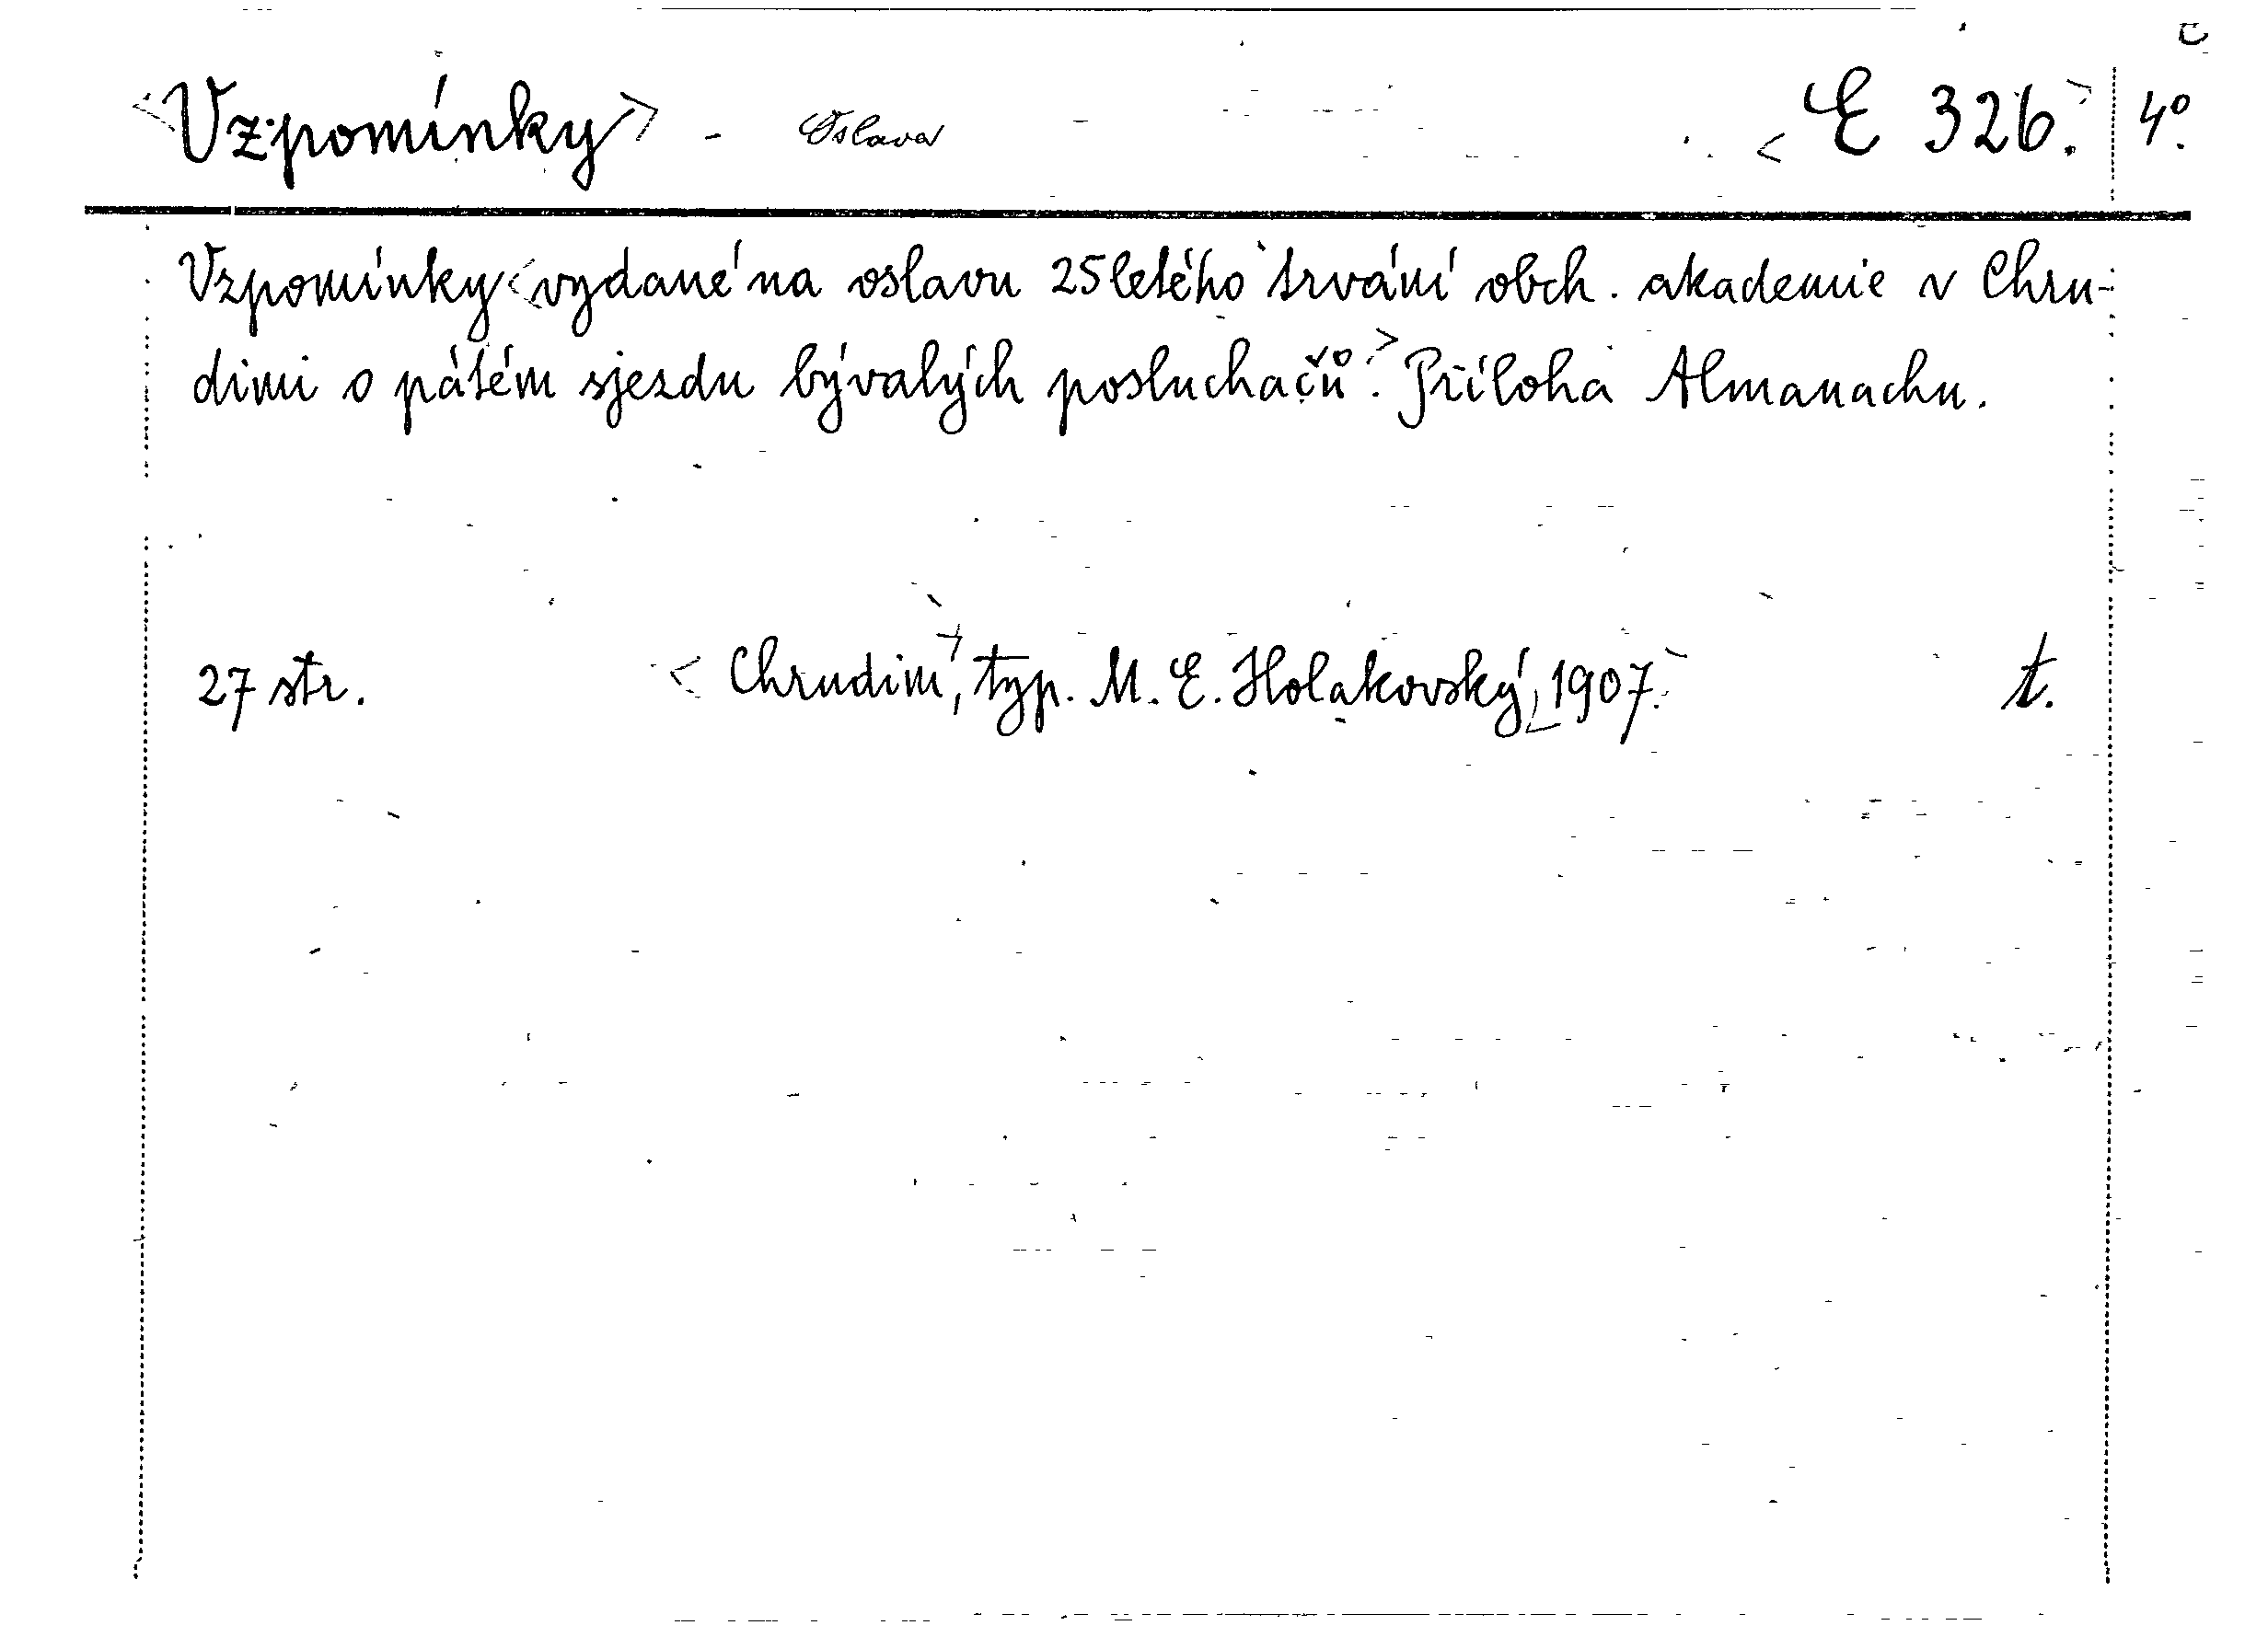 <Vzpomínky> - Oslava <E 326.> 4º.
Vzpomínky <vydané na oslavu 25letého trvání obch. akademie v Chru-
dimi o pátém sjezdu bývalých posluchačů.> Příloha Almanachu.
27 str. <Chrudim>, typ. M. E. Holakovský, <1907.> t.